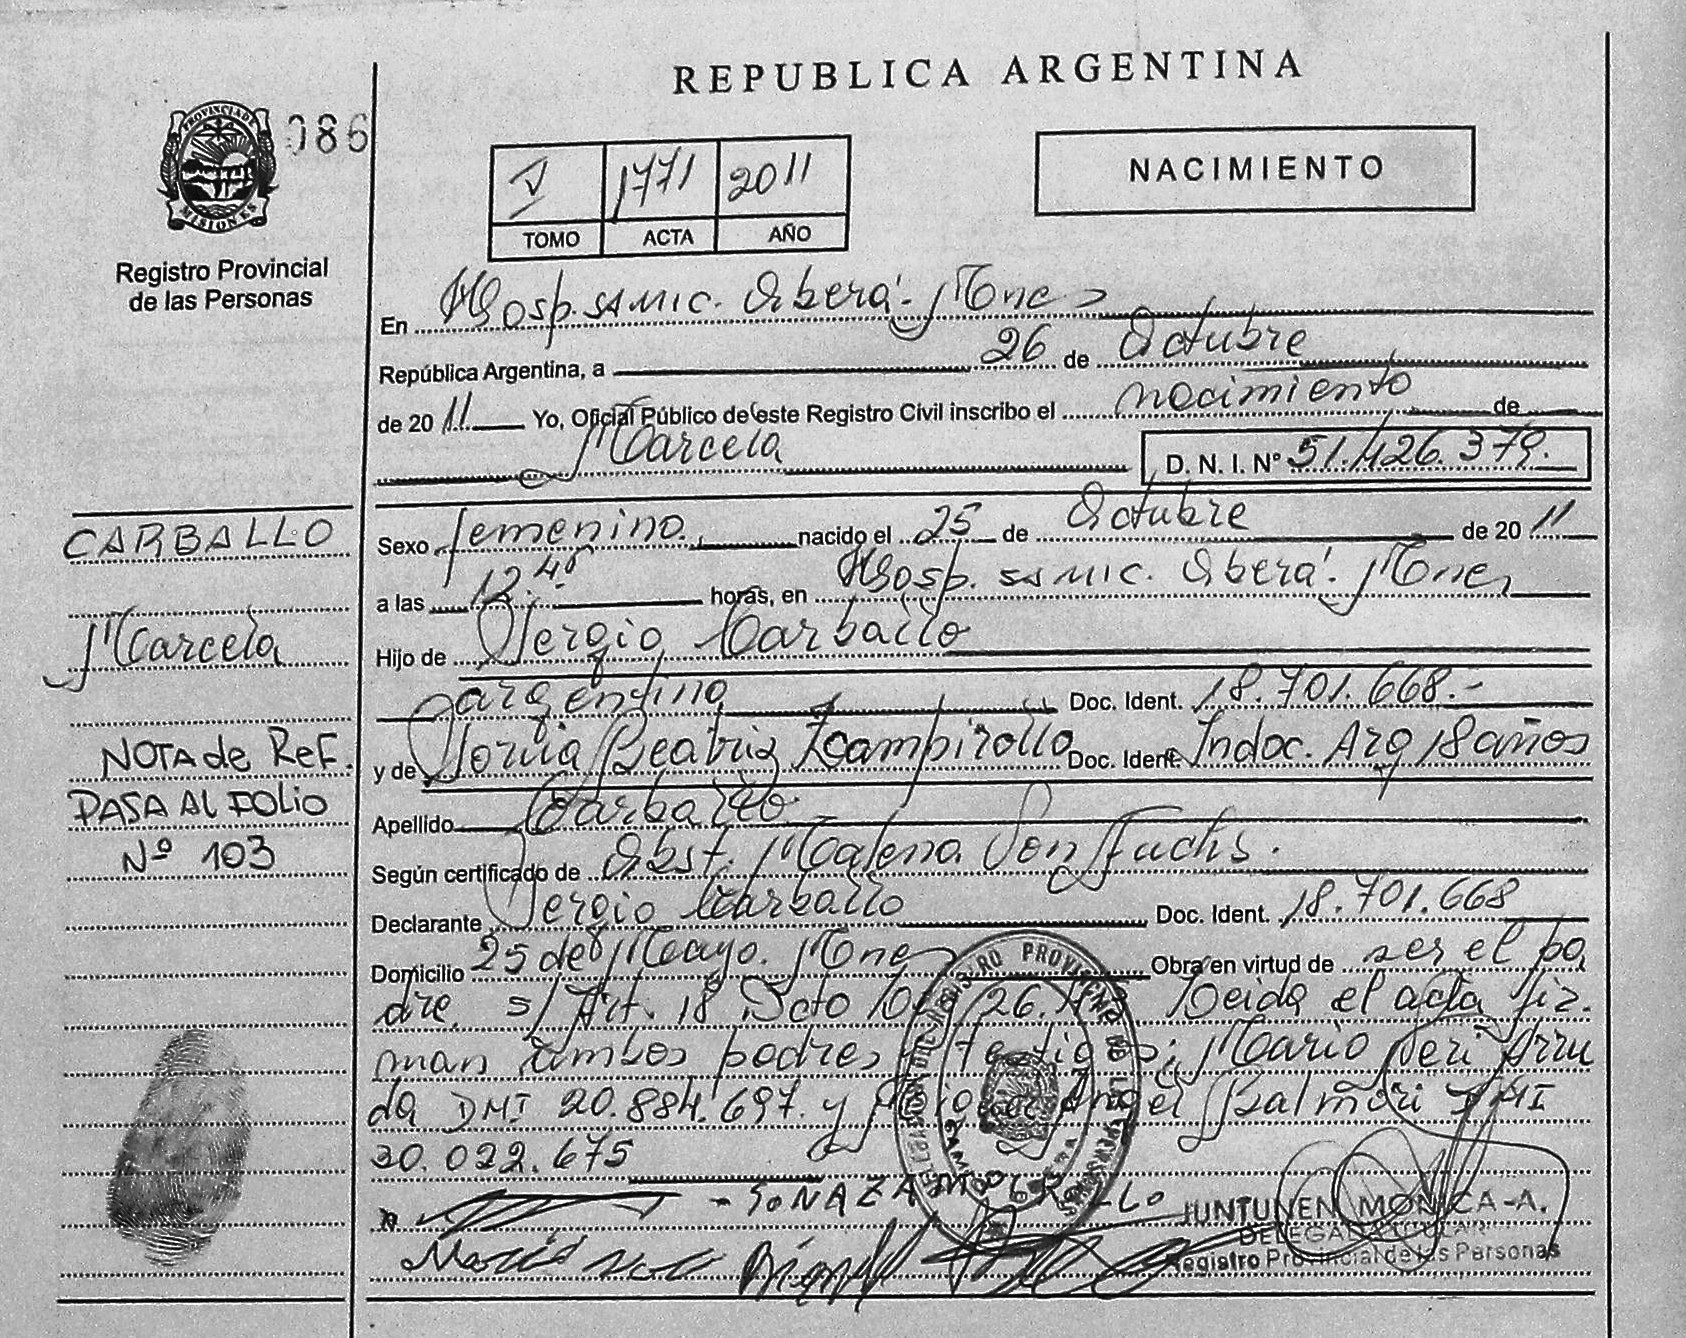 REPUBLICA ARGENTINA
PROVINCIA DE MISIONES
086
Registro Provincial
de las Personas
V 1771 2011
TOMO ACTA AÑO
NACIMIENTO
En Hosp. SAMIC. Oberá - Mnes
República Argentina, a 26 de Octubre
de 2011 Yo, Oficial Público de este Registro Civil inscribo el nacimiento de
Marcela D. N. I. Nº 51.426.379.
CARBALLO
Marcela
NOTA de ReF.
PASA AL FOLIO
Nº 103
Sexo femenino nacido el 25 de Octubre de 2011
a las 12.40 horas, en Hosp. SAMIC. Oberá. Mnes
Hijo de Sergio Carballo
argentino Doc. Ident. 18.701.668.-
y de Sonia Beatriz Zampirollo Doc. Ident. Indoc. Arg 18 años
Apellido Carballo
Según certificado de Obst. Malena Von Fuchs.
Declarante Sergio Carballo Doc. Ident. 18.701.668
Domicilio 25 de Mayo. Mnes Obra en virtud de ser el pa
dre. s/ Art. 18 Dcto Leida el acta fir-
man ambos padres y testigos; Mario Neri Arru
da DNI 20.884.697. y Miguel Angel Balmori DNI
30.022.675
JUNTUNEN MONICA-A.
DELEGADA TITULAR
Registro Provincial de las Personas